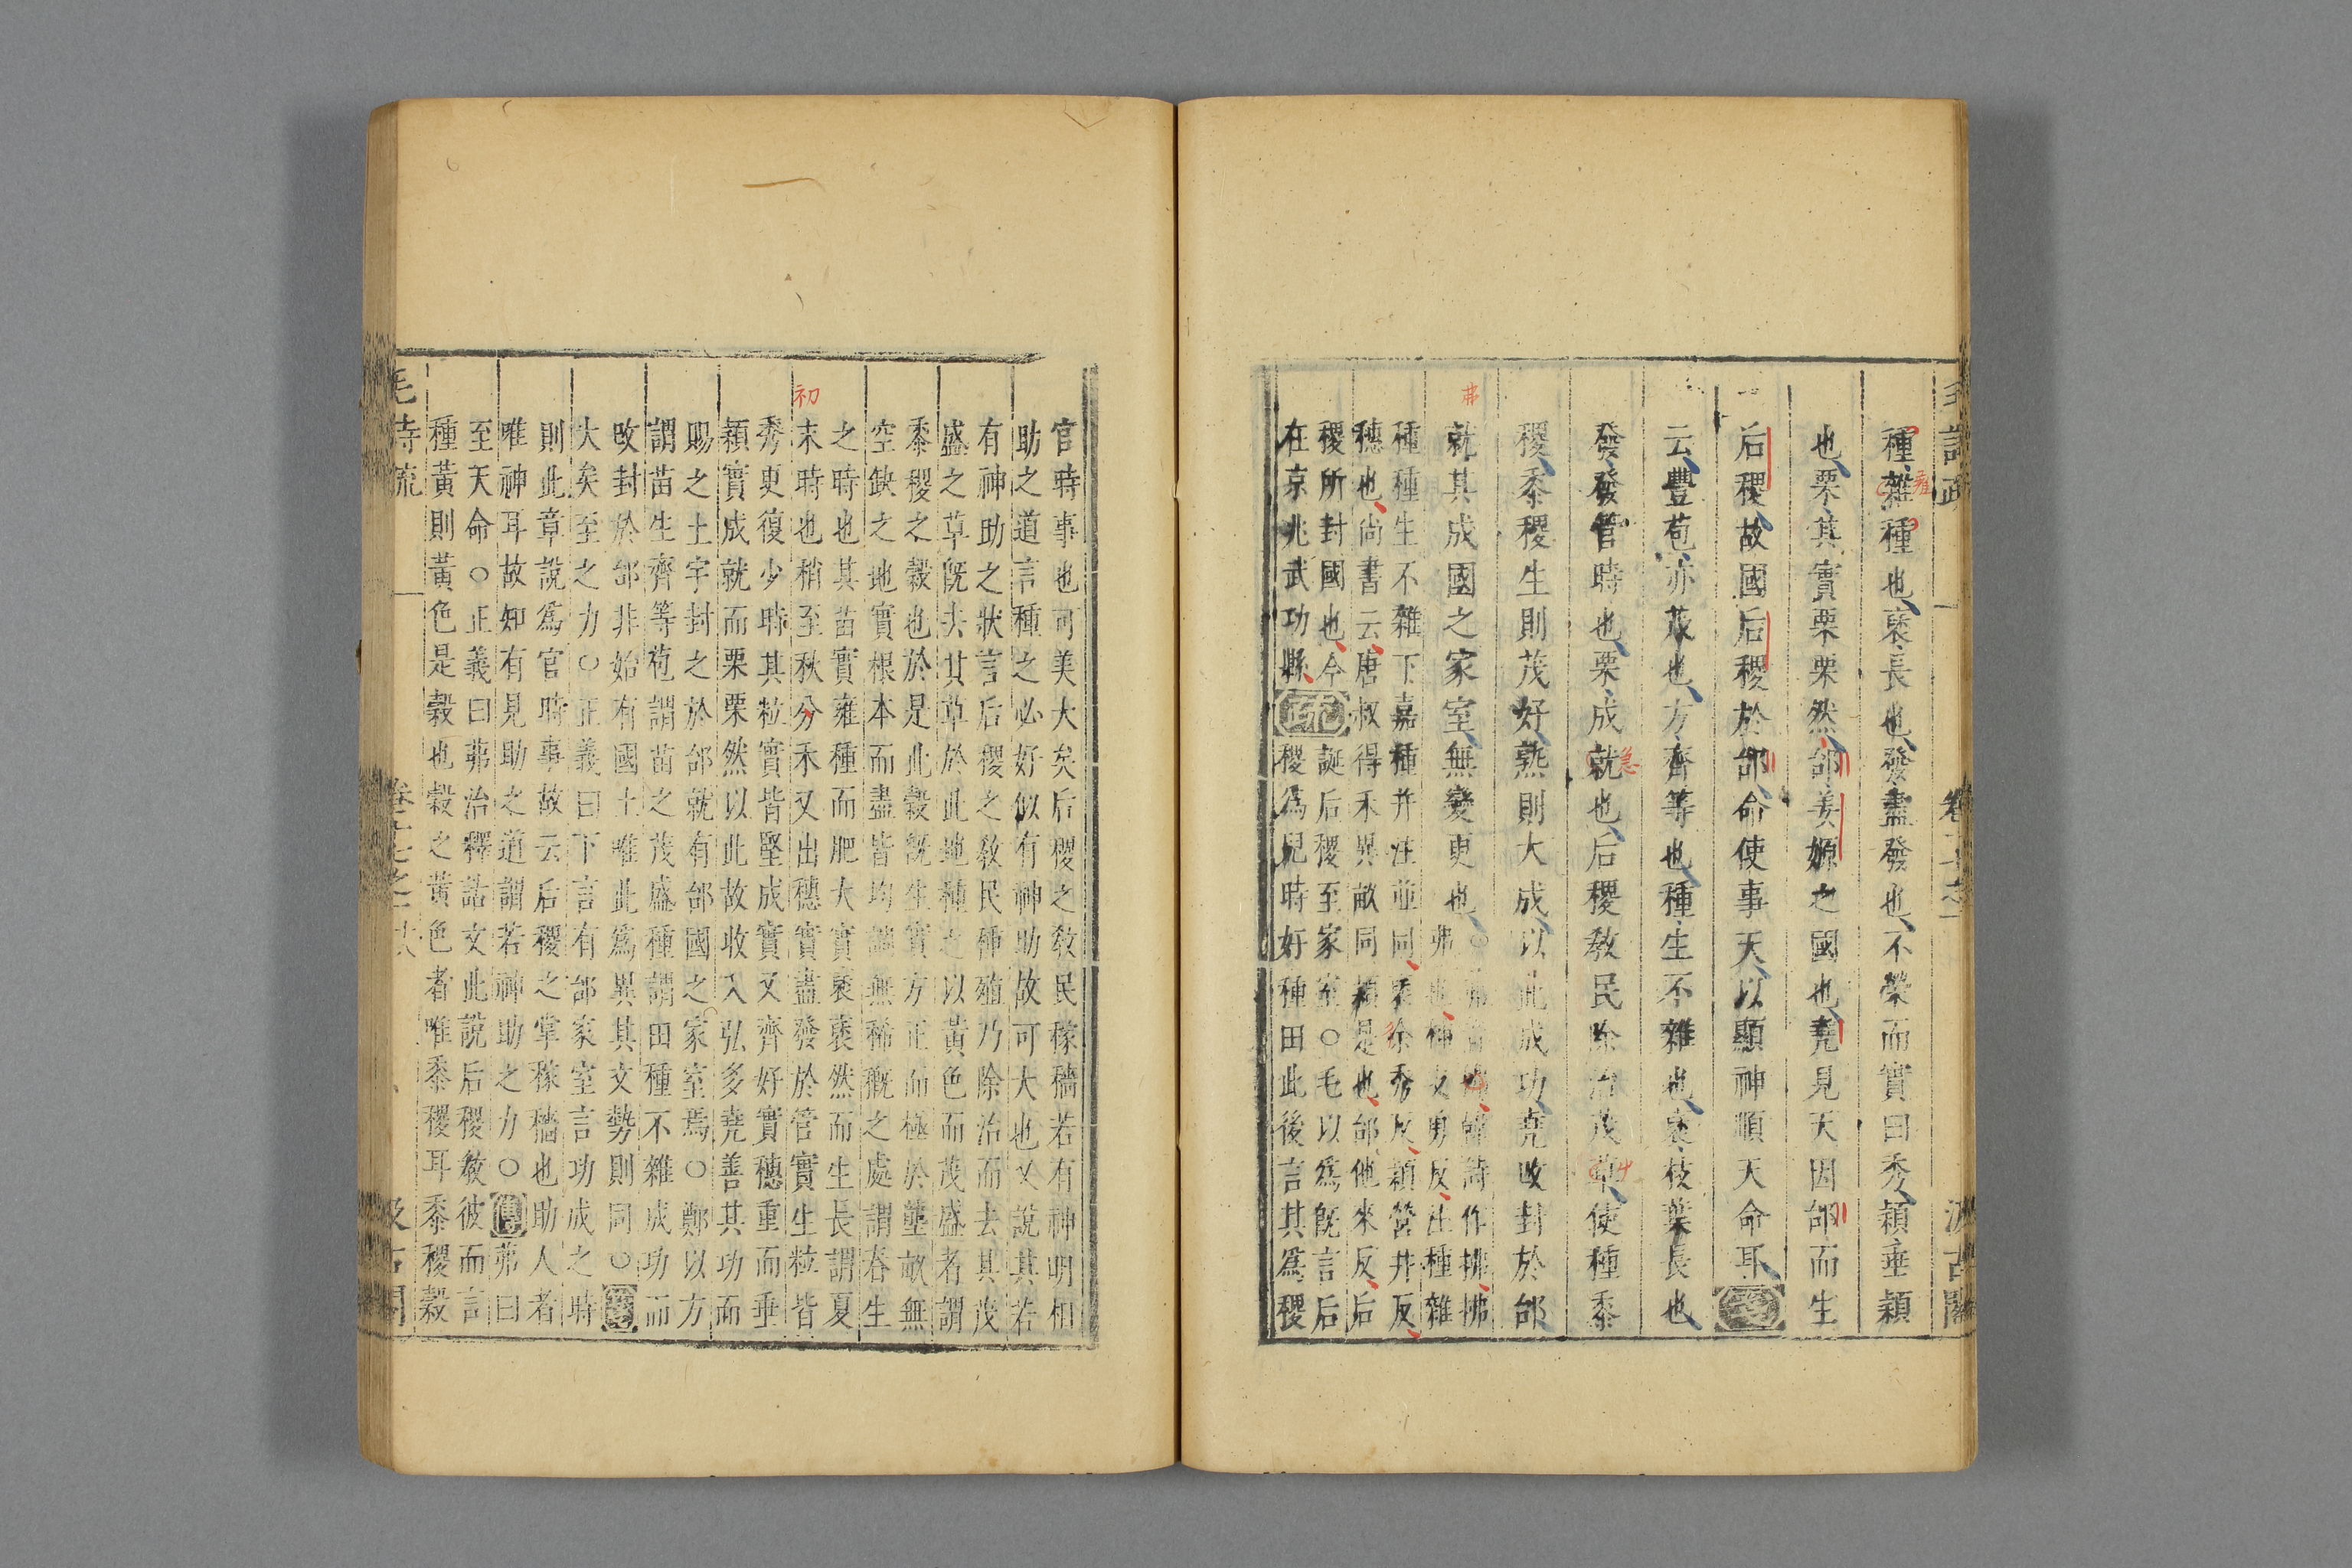 種雜種也褎長也發盡發也不榮而實曰秀穎垂穎
也栗其實栗栗然邰姜嫄之國也堯見天因邰而生
后稷故國后稷於邰命使事天以顯神順天命耳箋
云豐苞亦茂也方齊等也種生不雜也褎枝葉長也
發發管時也栗成就也后稷敎民除治茂草使種黍
稷黍稷生則茂好熟則大成以此成功堯改封於邰
就其成國之家室無變更也
種種生不雜下嘉種并注並同褎徐秀反穎營井反
穗也尚書云唐叔得禾異畝同穎是也邰他來反后
稷所封國也今在京兆武功縣
疏
誕后稷至家室○毛以爲旣言后
稷爲兒時好種田此後言其爲稷
官時事也可美大矣后稷之敎民稼穡若有神明相
助之道言種之必好似有神助故可大也又說其若
有神助之狀言后稷之敎民種殖乃除治而去其茂
盛之草旣去其草於此地種之以黃色而茂盛者謂
黍稷之穀也於是此穀旣生實方正而極於壟畝無
空缺之地實根本而盡皆均調無稀穊之處謂春生
之時也其苗實雍種而肥大實褎褎然而生長謂夏
末時也稍至秋分禾又出穗實盡發於管實生粒皆
秀更復少時其粒實皆堅成實又齊好實穗重而垂
穎實成就而栗栗然以此故收入弘多堯善其功而
賜之土宇封之於邰就有邰國之家室焉○鄭以方
謂苗生齊等苞謂苗之茂盛種謂田種不雜成功而
改封於邰非始有國土唯此爲異其文勢則同○箋
大矣至之力○正義曰下言有邰家室言功成之時
則此章說爲官時事故云后稷之掌稼穡也助人者
唯神耳故知有見助之道謂若神助之力○傳茀曰
至天命○正義曰茀治釋詁文此說后稷敎彼而言
種黃則黃色是穀也穀之黃色者唯黍稷耳黍稷穀